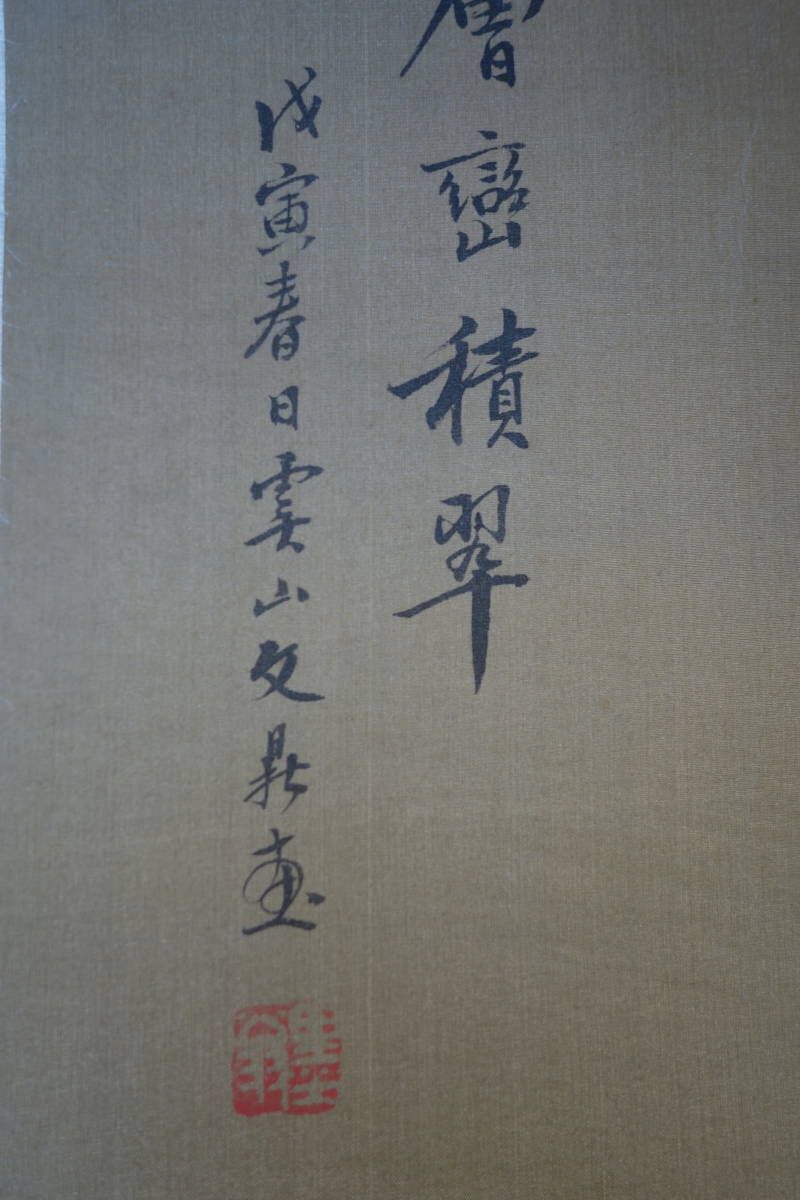 層巒積翠
戊寅春日雲山文鼎畫